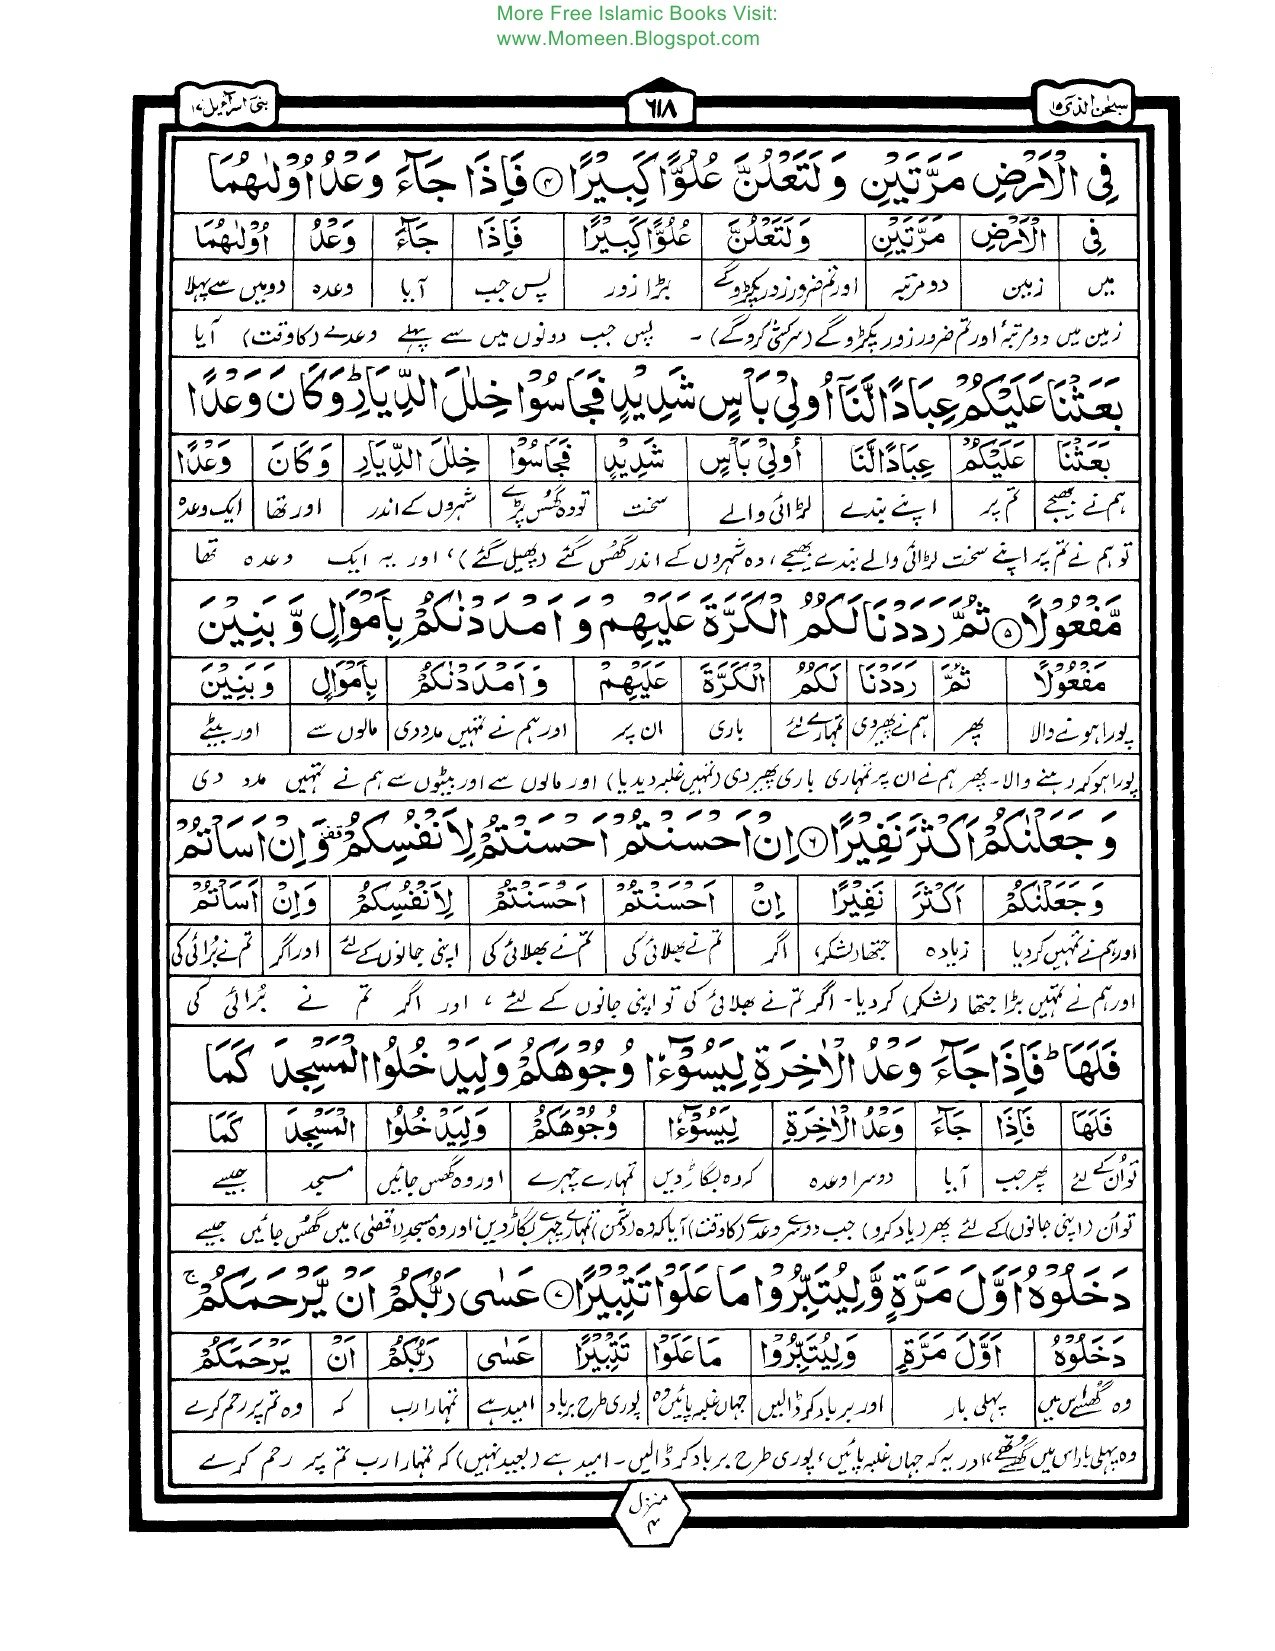 More Free Islamic Books Visit:
www.Momeen.Blogspot.com
سبحٰن الذی ۱۵ ۶۱۸ بنی اسرآءیل ۱۷
فِی الْاَرْضِ مَرَّتَیْنِ وَلَتَعْلُنَّ عُلُوًّا كَبِیْرًا ۴ فَاِذَا جَآءَ وَعْدُ اُوْلٰىهُمَا
فِی الْاَرْضِ مَرَّتَیْنِ وَلَتَعْلُنَّ عُلُوًّا كَبِیْرًا فَاِذَا جَآءَ وَعْدُ اُوْلٰىهُمَا
میں زمین دو مرتبہ اور تم ضرور زور پکڑوگے بڑا زور پس جب آیا وعدہ دو میں سے پہلا
زمین میں دو مرتبہ اور تم ضرور زور پکڑوگے (سرکشی کروگے) ۔ پس جب دونوں میں سے پہلے وعدے (کا وقت) آیا
بَعَثْنَا عَلَیْكُمْ عِبَادًا لَّنَاۤ اُولِیْ بَاْسٍ شَدِیْدٍ فَجَاسُوْا خِلٰلَ الدِّیَارِ ؕ وَكَانَ وَعْدًا
بَعَثْنَا عَلَیْكُمْ عِبَادًا لَّنَا اُولِیْ بَاْسٍ شَدِیْدٍ فَجَاسُوْا خِلٰلَ الدِّیَارِ وَكَانَ وَعْدًا
ہم نے بھیجے تم پر اپنے بندے لڑائی والے سخت تو وہ گھس پڑے شہروں کے اندر اور تھا ایک وعدہ
تو ہم نے تم پر اپنے سخت لڑائی والے بندے بھیجے، وہ شہروں کے اندر گھس گئے (پھیل گئے)، اور یہ ایک وعدہ تھا
مَّفْعُوْلًا ۵ ثُمَّ رَدَدْنَا لَكُمُ الْكَرَّةَ عَلَیْهِمْ وَاَمْدَدْنٰكُمْ بِاَمْوَالٍ وَّبَنِیْنَ
مَفْعُوْلًا ثُمَّ رَدَدْنَا لَكُمُ الْكَرَّةَ عَلَیْهِمْ وَاَمْدَدْنٰكُمْ بِاَمْوَالٍ وَبَنِیْنَ
پورا ہونے والا پھر ہم نے پھیر دی تمہارے لئے باری ان پر اور ہم نے تمہیں مدد دی مالوں سے اور بیٹے
پورا ہو کر رہنے والا۔ پھر ہم نے ان پر تمہاری باری پھیر دی (تمہیں غلبہ دیدیا) اور مالوں سے اور بیٹوں سے ہم نے تمہیں مدد دی
وَجَعَلْنٰكُمْ اَكْثَرَ نَفِیْرًا ۶ اِنْ اَحْسَنْتُمْ اَحْسَنْتُمْ لِاَنْفُسِكُمْ ۫ وَاِنْ اَسَاْتُمْ
وَجَعَلْنٰكُمْ اَكْثَرَ نَفِیْرًا اِنْ اَحْسَنْتُمْ اَحْسَنْتُمْ لِاَنْفُسِكُمْ وَاِنْ اَسَاْتُمْ
اور ہم نے تمہیں کردیا زیادہ جتھا (لشکر) اگر تم نے بھلائی کی تم نے بھلائی کی اپنی جانوں کے لئے اور اگر تم نے بُرائی کی
اور ہم نے تمہیں بڑا جتھا (لشکر) کردیا۔ اگر تم نے بھلائی کی تو اپنی جانوں کے لئے، اور اگر تم نے بُرائی کی
فَلَهَا ؕ فَاِذَا جَآءَ وَعْدُ الْاٰخِرَةِ لِیَسُوْٓءٗا وُجُوْهَكُمْ وَلِیَدْخُلُوا الْمَسْجِدَ كَمَا
فَلَهَا فَاِذَا جَآءَ وَعْدُ الْاٰخِرَةِ لِیَسُوْٓءٗا وُجُوْهَكُمْ وَلِیَدْخُلُوا الْمَسْجِدَ كَمَا
تو اُن کے لئے پھر جب آیا دوسرا وعدہ کہ وہ بگاڑ دیں تمہارے چہرے اور وہ گھس جائیں مسجد جیسے
تو اُن (اپنی جانوں) کے لئے پھر (یاد کرو) جب دوسرے وعدے (کا وقت) آیا کہ وہ (دشمن) تمہارے چہرے بگاڑ دیں، اور وہ مسجد (اقصٰی) میں گھس جائیں جیسے
دَخَلُوْهُ اَوَّلَ مَرَّةٍ وَّلِیُتَبِّرُوْا مَا عَلَوْا تَتْبِیْرًا ۷ عَسٰی رَبُّكُمْ اَنْ یَّرْحَمَكُمْ ۚ
دَخَلُوْهُ اَوَّلَ مَرَّةٍ وَلِیُتَبِّرُوْا مَا عَلَوْا تَتْبِیْرًا عَسٰی رَبُّكُمْ اَنْ یَرْحَمَكُمْ
وہ گھسے اس میں پہلی بار اور برباد کر ڈالیں جہاں غلبہ پائیں وہ پوری طرح برباد امید ہے تمہارا رب کہ وہ تم پر رحم کرے
وہ پہلی بار اس میں گھسے تھے، اور یہ کہ جہاں غلبہ پائیں، پوری طرح برباد کر ڈالیں۔ امید ہے (بعید نہیں) کہ تمہارا رب تم پر رحم کرے
منزل
۴